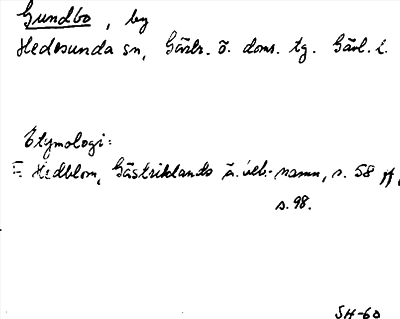 Gundbo, by
Hedesunda sn, Gästr. ö. doms. tg. Gävl. l.
Etymologi:
F. Hedblom, Gästriklands ä. beb. namn, s. 58 ff,
s. 98.
SH-60